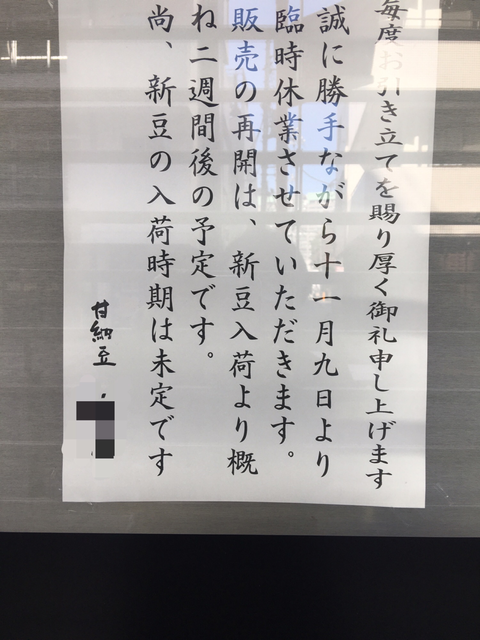 毎度お引き立てを賜り厚く御礼申し上げます
誠に勝手ながら十一月九日より
臨時休業させていただきます。
販売の再開は、新豆入荷より概
ね二週間後の予定です。
尚、新豆の入荷時期は未定です
甘納豆